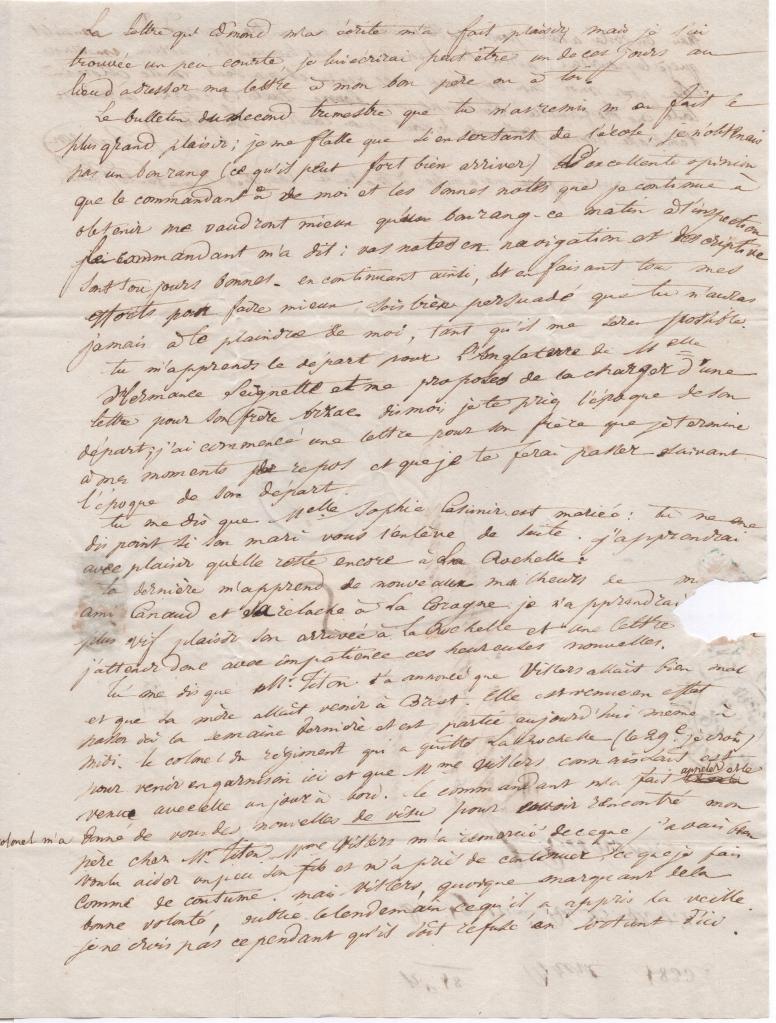 La lettre qu'Edmond m'a écrite m'a fait plaisir, mais je l'ai
trouvée un peu courte, je lui écrirai peut être un de ces jours au
lieu d'adresser ma lettre à mon bon père ou à toi.
Le bulletin du second trimestre que tu m'as remis m'a fait le
plus grand plaisir; je me flatte que si en sortant de l'école, je n'obtenais
pas un bon rang (ce qu'il peut fort bien arriver) l'excellente opinion
que le commandant a de moi et les bonnes notes que je continue à
obtenir me vaudront mieux qu'un bon rang - ce matin à l'inspection
le commandant m'a dit: vos notes en navigation et descriptive
sont toujours bonnes - en continuant ainsi, et en faisant tous mes
efforts pour faire mieux sois bien persuadé que tu n'auras
jamais à te plaindre de moi, tant qu'il me sera possible.
tu m'apprends le départ pour l'Angleterre de Melle
Hermance Seignette et me proposes de la charger d'une
lettre pour son frère dis moi je te prie l'époque de son
départ; j'ai commencé une lettre pour son frère que je termine
à mes moments de repos et que je te ferai passer suivant
l'époque de son départ.
tu me dis que Melle Sophie Casimir est mariée: tu ne me
dis point si son mari vous l'enlève de suite. j'apprendrai
avec plaisir qu'elle reste encore à La Rochelle.
ta dernière m'apprend de nouveaux malheurs de m
ami Canaud et sa relache à La Corogne je n'apprendrai
plus vif plaisir son arrivée à la Rochelle et une lettre
j'attends donc avec impatience ces heureuses nouvelles.
tu me dis que Mr. Titon t'a annoncé que Villers allait bien mal
et que sa mère allait venir à Brest. Elle est venue en effet
passer ici la semaine dernière et est partie aujourd'hui même à
midi. le colonel du régiment qui a quitté La Rochelle (le 29e. je crois)
pour venir en garnison ici et que Mme Villers connaissait est
venu avec elle un jour à bord. le commandant m'a fait appeler et le
colonel m'a donné de vous des nouvelles de visu pour avoir rencontré mon
père chez Mr. Titon. Mme Villers m'a remercié de ce que j'avais bien
voulu aider un peu son fils et m'a prié de continuer, ce que je fais
comme de coutume. mais Villers, quoique marquant de la
bonne volonté, oublie le lendemain ce qu'il a appris la veille.
je ne crois pas cependant qu'il soit refusé en sortant d'ici.